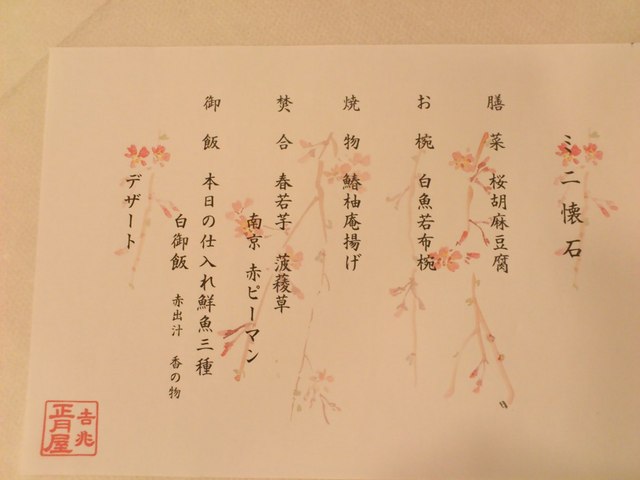 ミニ懐石
膳菜 桜胡麻豆腐
お椀 白魚若布椀
焼物 鰆柚庵揚げ
焚合 春若芋 菠薐草
南京 赤ピーマン
御飯 本日の仕入れ鮮魚三種
白御飯 赤出汁 香の物
デザート
吉兆
正月屋